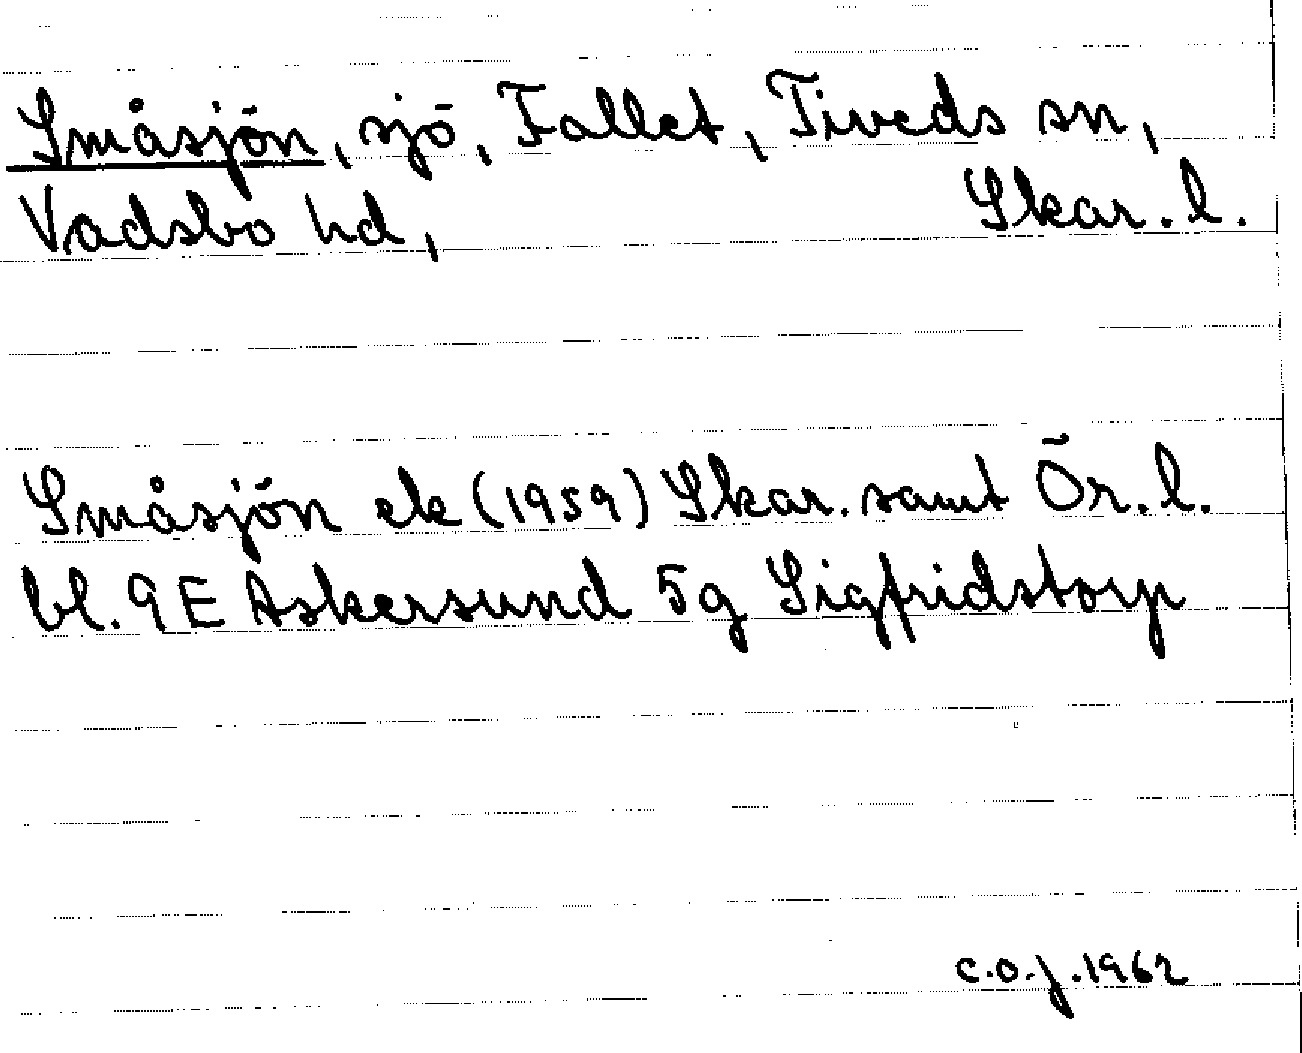 Småsjön, sjö, Fallet, Tiveds sn,
Vadsbo hd, Skar. l.
Småsjön ek (1959) Skar. samt Ör. l.
bl. 9E Askersund 5g Sigfridstorp
C.O.J. 1962